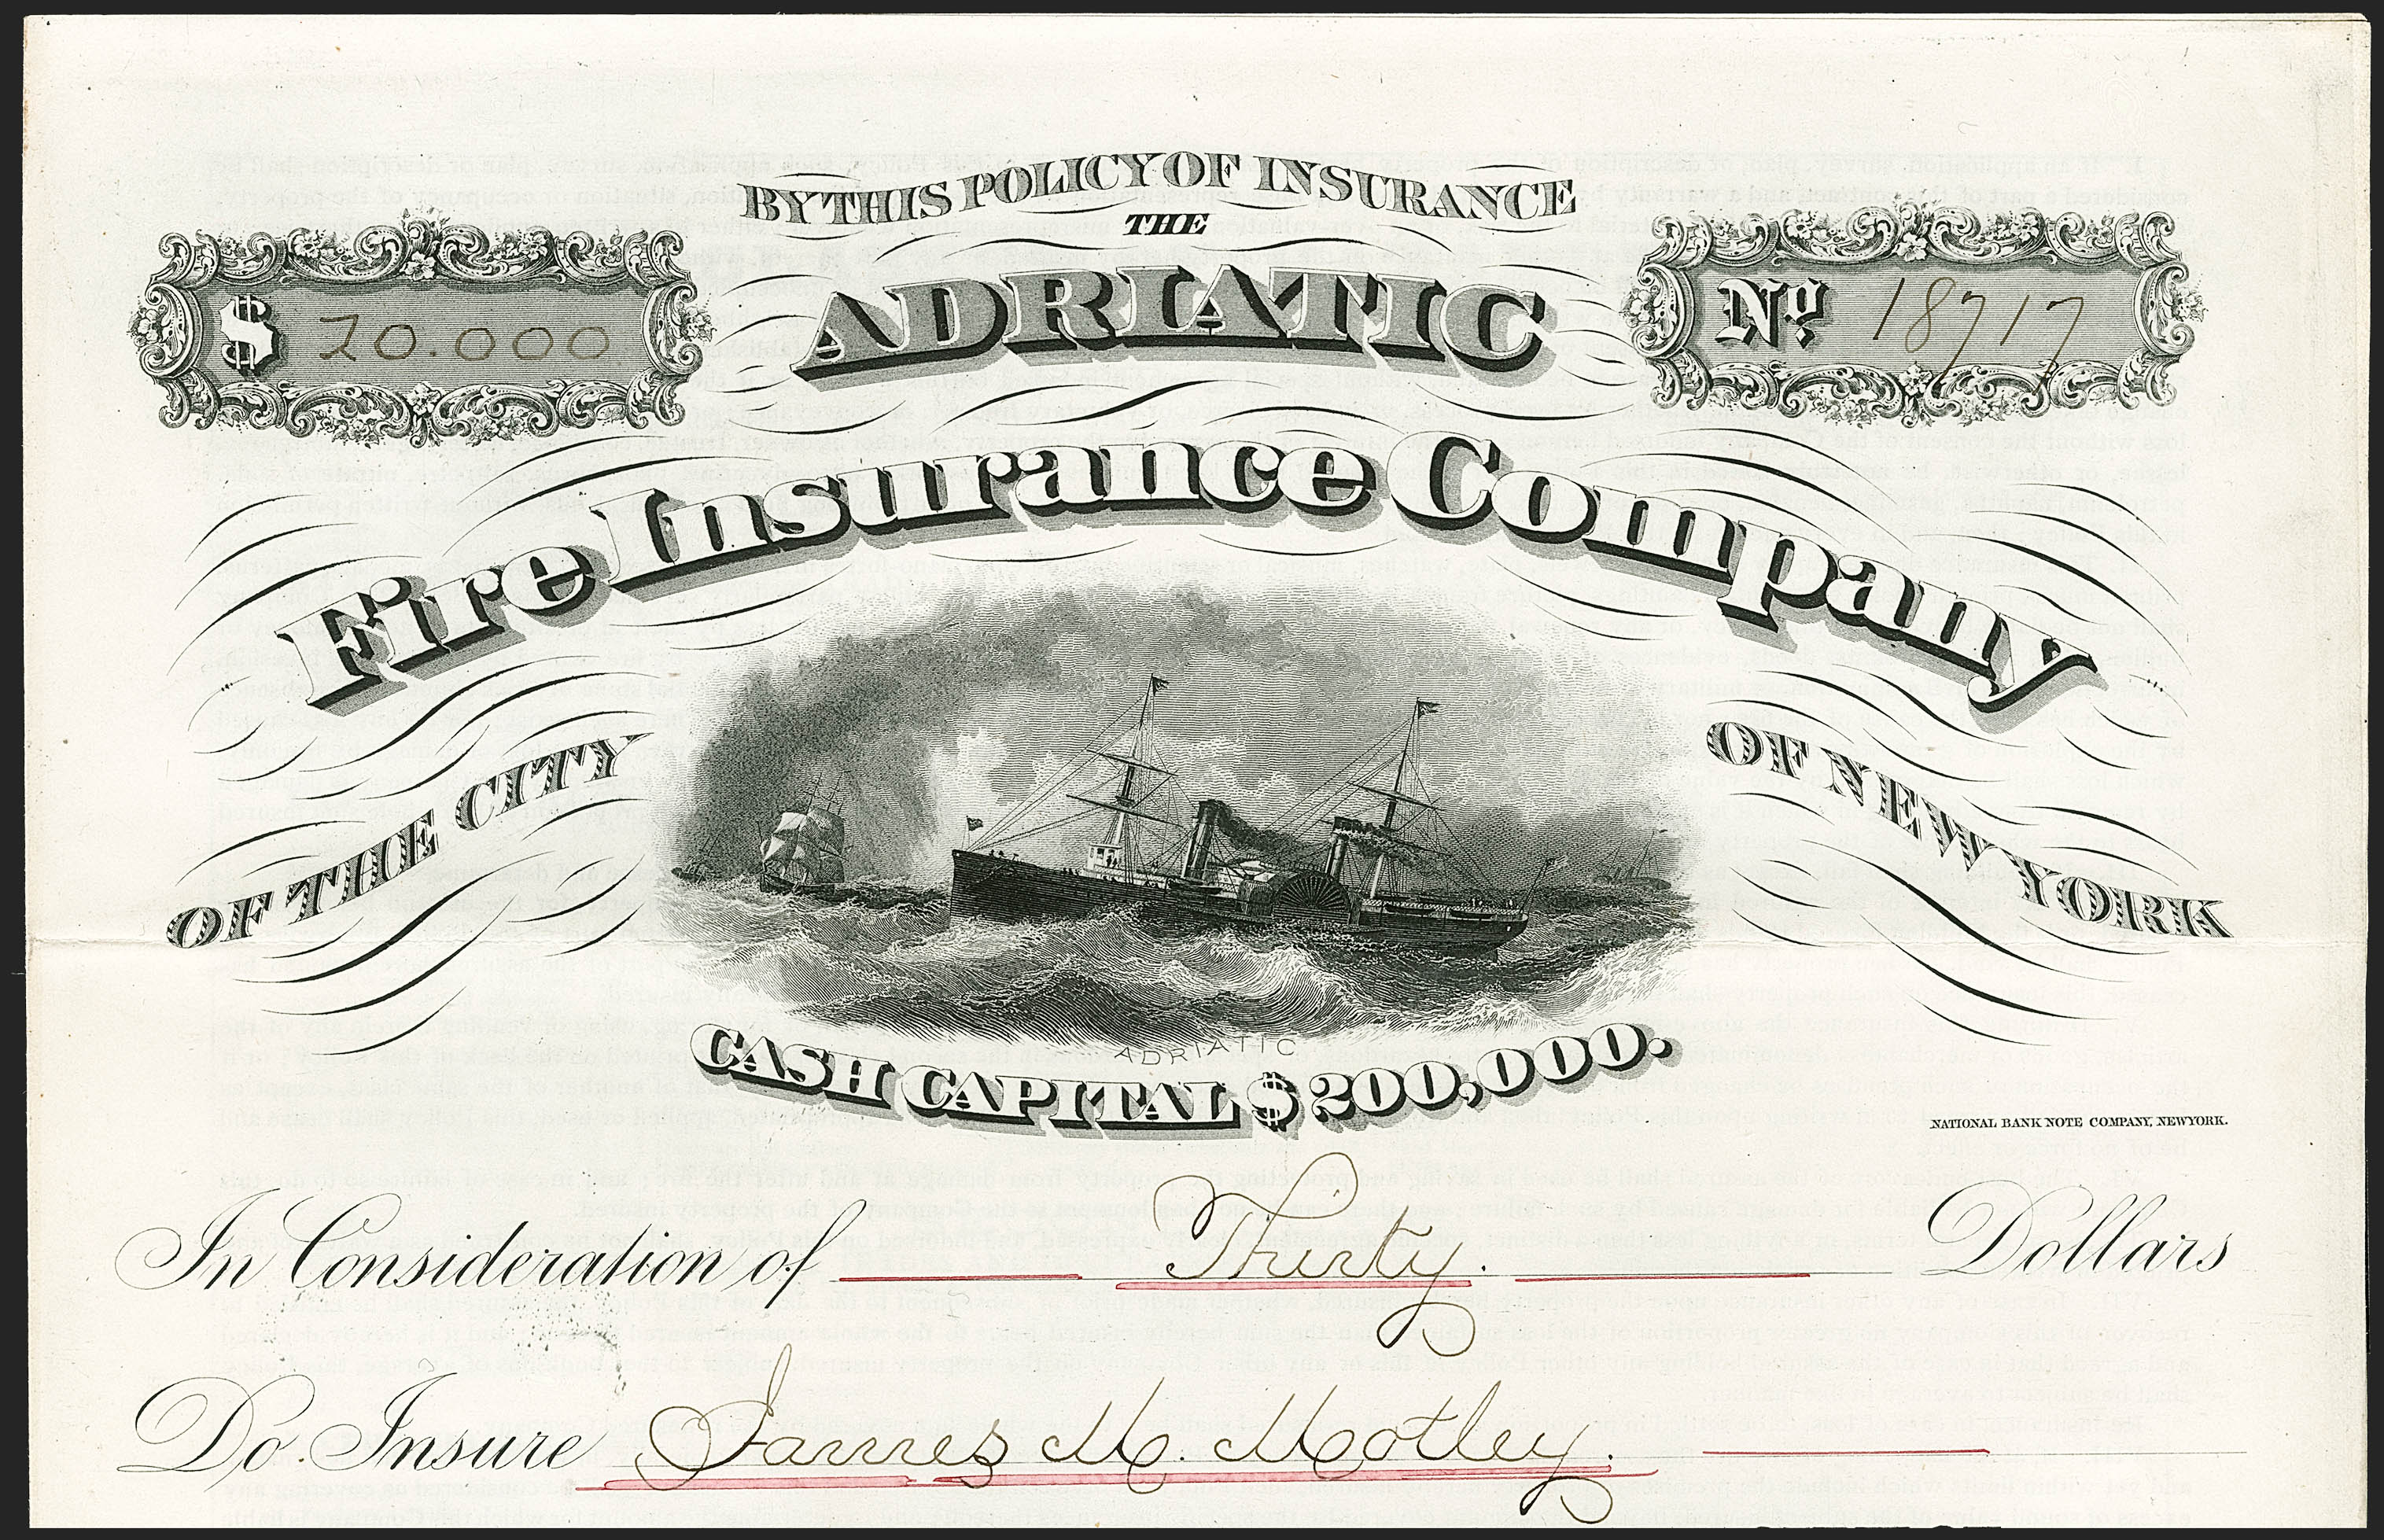 BY THIS POLICY OF INSURANCE
THE
$ 20.000
ADRIATIC
No. 18717
Fire Insurance Company
OF THE CITY
OF NEW YORK
ADRIATIC
CASH CAPITAL $200,000.
NATIONAL BANK NOTE COMPANY, NEW YORK.
In Consideration of Thirty. Dollars
Do Insure James M. Motley.